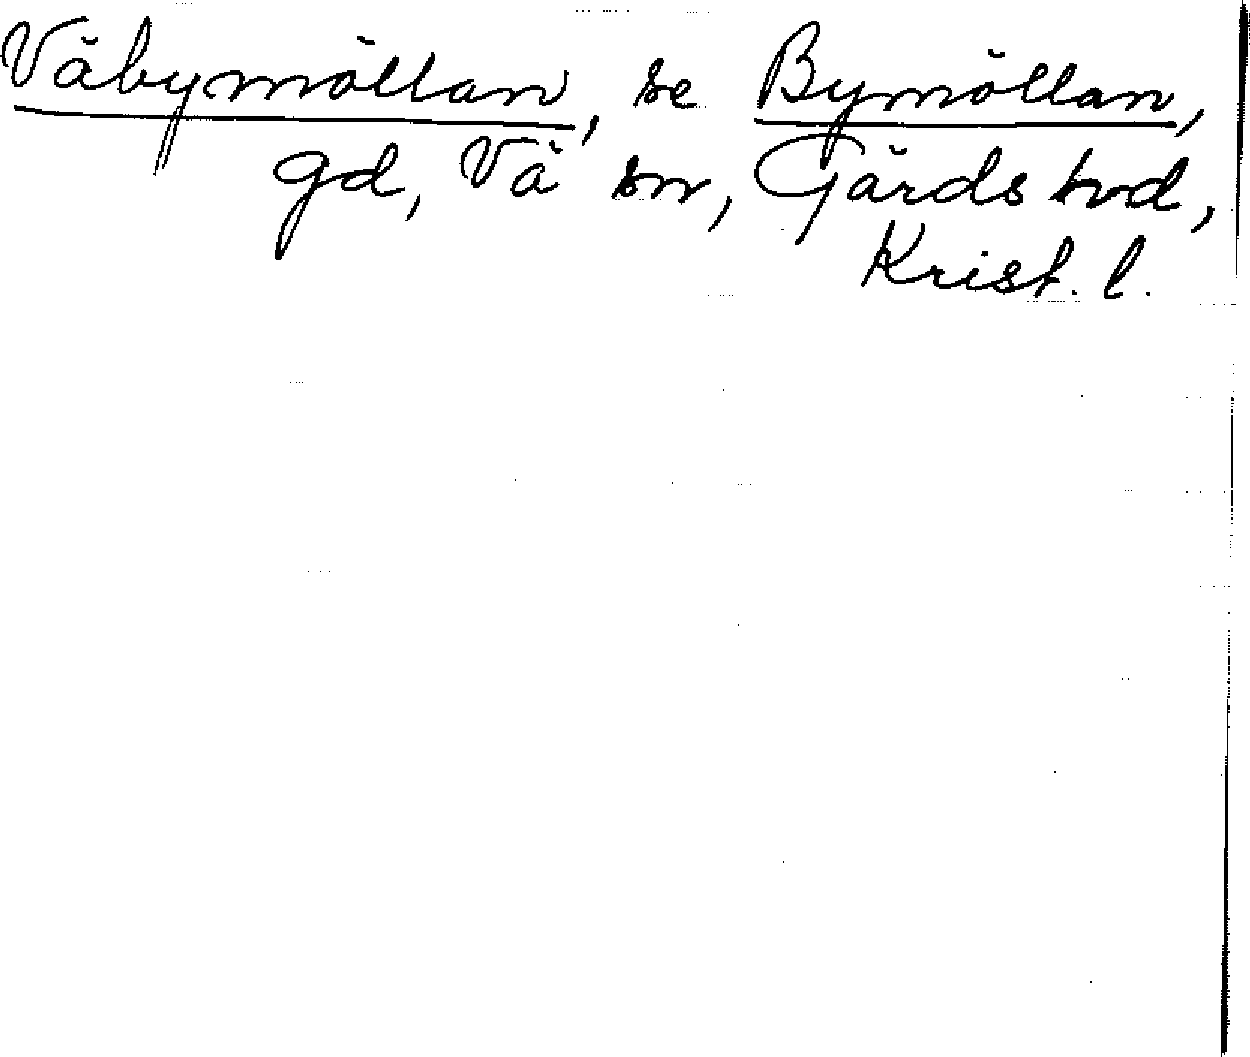 Väbymöllan, se Bymöllan,
gd, Vä sn, Gärds hd,
Krist. l.